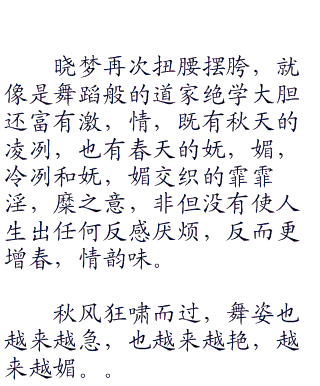 晓梦再次扭腰摆胯，就
像是舞蹈般的道家绝学大胆
还富有激，情，既有秋天的
凌冽，也有春天的妩，媚，
冷冽和妩，媚交织的霏霏
淫，糜之意，非但没有使人
生出任何反感厌烦，反而更
增春，情韵味。
秋风狂啸而过，舞姿也
越来越急，也越来越艳，越
来越媚。。